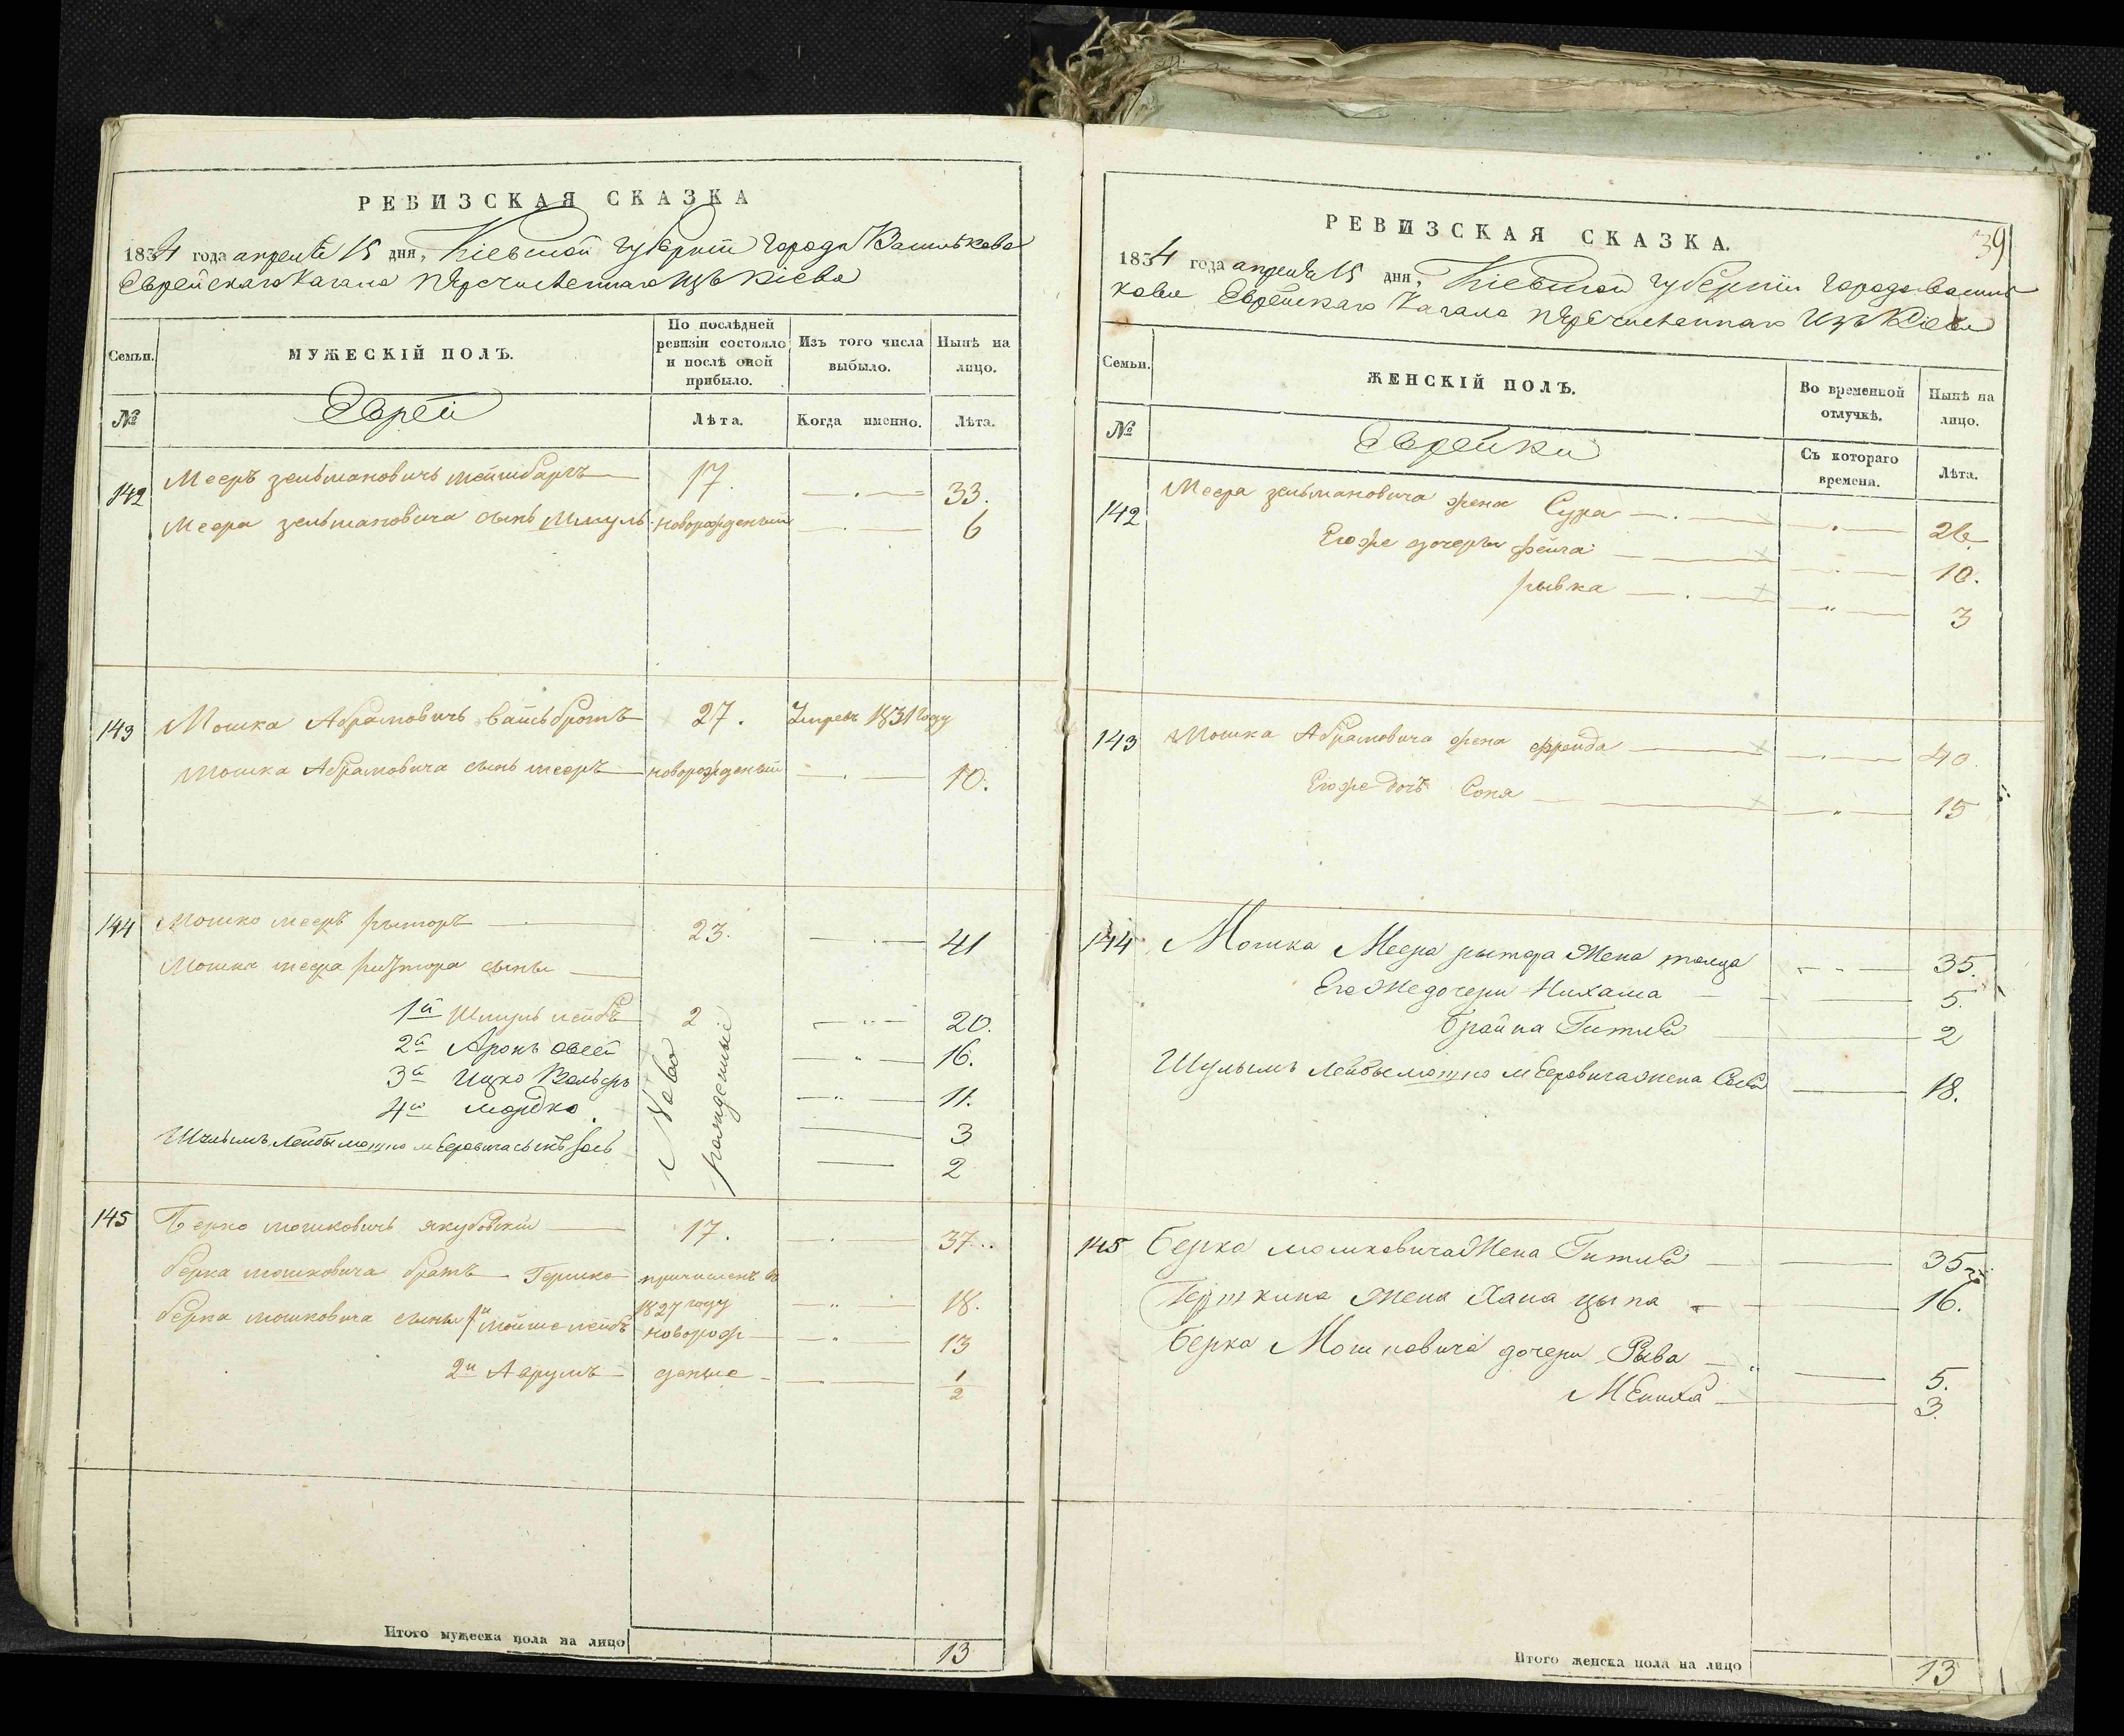 РЕВИЗСКАЯ СКАЗКА
1834 года апреля 15 дня, Кіевской губерніи города Василькова
Еврейскаго Кагала перечисленнаго изъ Кіева
Семьи.
МУЖЕСКІЙ ПОЛЪ.
По послѣдней ревизіи состояло и послѣ оной прибыло.
Изъ того числа выбыло.
Нынѣ на лицо.
№
Еврей
Лѣта.
Когда именно.
Лѣта.
142
Мееръ зельмановичъ 17. 33.
Меера зельмановича сынъ Шмуль новорожденый 6
143 Мошка Абрамовичъ вайсбротъ 27. Умреъ 1831 году
Мошка Абрамовича сынъ мееръ новорожденый 10.
144 Мошко мееръ рыторъ 23. 41
Мошка меера сыны
1й Шмуль лейбъ 2 20.
2й Аронъ овсей 16.
3й Ицко Вольфъ 11.
4й мордко. 3
Шмулымъ Лейбы мошко мееровича сынъ 2
Ново
рожденные
145 Берко мошковичъ якубовскій 17. 37.
берка мошковича братъ Гершко причисленъ въ
1827 году 18.
берка мошковича сыны 1й мойше лейбъ новорож 13
2й Аврумъ деные 1/2
Итого мужеска пола на лицо 13
РЕВИЗСКАЯ СКАЗКА.
39
1834 года апреля 15 дня, Кіевской губерніи города василь
кова Еврейскаго Кагала перечисленнаго изъ Кіева
Семьи.
ЖЕНСКІЙ ПОЛЪ.
Во временной отлучкѣ.
Нынѣ на лицо.
№
Еврейки
Съ котораго времени.
Лѣта.
142 Меера зельмановича жена Сура 26.
Егоже дочеры фейга 10.
рывка 3
143 Мошка Абрамовича жена фрейда 40.
Егоже дочъ Соня 15
144 Мошка Меера рытора Жена 35.
Его Же дочери Нихама 5.
Брайна Гитля 2
Шулымъ Лейбы мошко мееровича жена 18.
145 Берка мошковича Жена Гитля 35
Гершкина Жена Хана ципа 16.
Берка Мошковича дочери Рыва 5.
3.
Итого женска пола на лицо 13